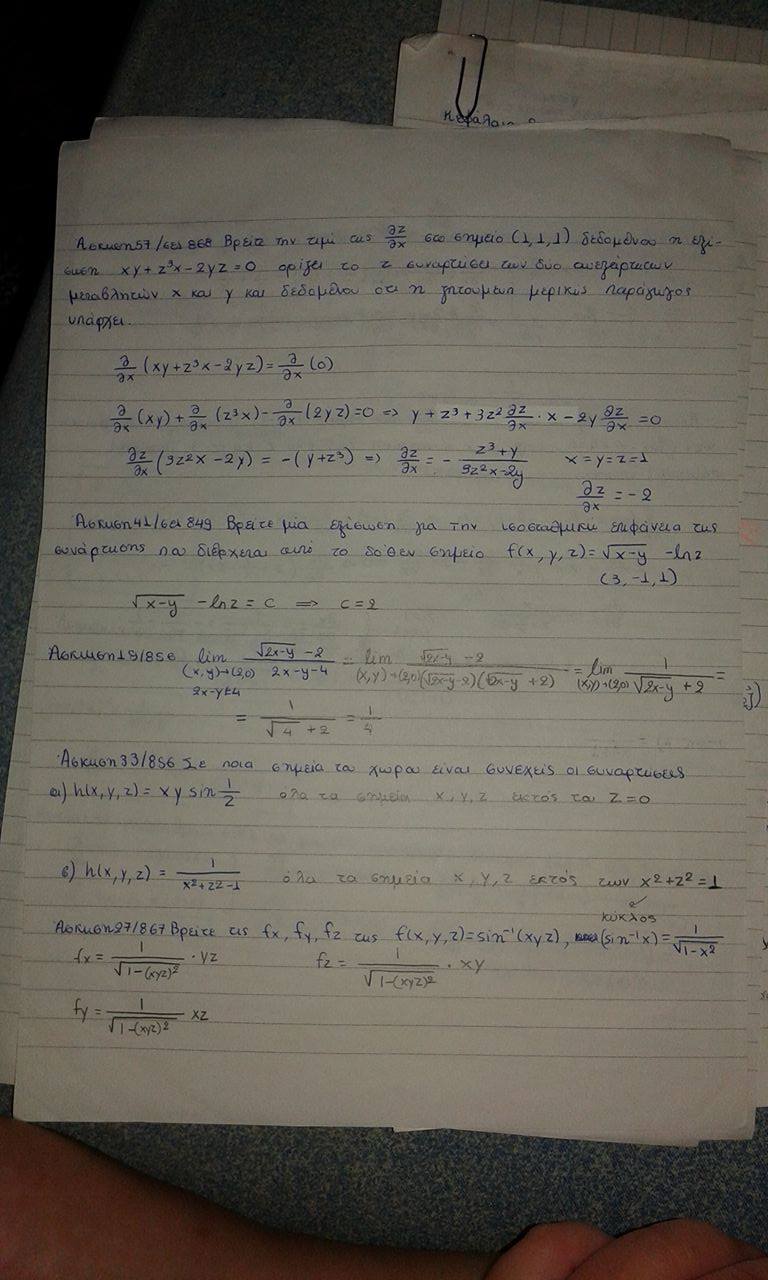 Κεφάλαιο
Άσκηση 57/σελ 868 Βρείτε την τιμή της ∂z/∂x στο σημείο (1,1,1) δεδομένου η εξί-
σωση xy + z³x - 2yz = 0 ορίζει το z συναρτήσει των δυο ανεξάρτητων
μεταβλητών x και y και δεδομένου ότι η ζητούμενη μερικώς παράγωγος
υπάρχει.
∂/∂x (xy + z³x - 2yz) = ∂/∂x (0)
∂/∂x (xy) + ∂/∂x (z³x) - ∂/∂x (2yz) = 0 => y + z³ + 3z² ∂z/∂x · x - 2y ∂z/∂x = 0
∂z/∂x (3z²x - 2y) = -(y + z³) => ∂z/∂x = - (z³ + y)/(3z²x - 2y) x = y = z = 1
∂z/∂x = -2
Άσκηση 41/σελ 849 Βρείτε μία εξίσωση για την ισοσταθμική επιφάνεια της
συνάρτησης που διέρχεται από το δοθέν σημείο f(x, y, z) = √(x-y) - ln z
(3, -1, 1)
√(x-y) - ln z = c => c = 2
Άσκηση 19/856 lim (x,y)→(2,0) 2x-y≠4 (√(2x-y) - 2)/(2x-y-4) = lim (x,y)→(2,0) (√(2x-y) - 2)/((√(2x-y) - 2)(√(2x-y) + 2)) = lim (x,y)→(2,0) 1/(√(2x-y) + 2) =
= 1/(√4 + 2) = 1/4
Άσκηση 33/856 Σε ποια σημεία του χώρου είναι συνεχείς οι συναρτήσεις
α) h(x,y,z) = xy sin 1/z όλα τα σημεία x, y, z εκτός του z = 0
β) h(x,y,z) = 1/(x² + z² - 1) όλα τα σημεία x, y, z εκτός των x² + z² = 1
κύκλος
Άσκηση 27/867 Βρείτε τις fx, fy, fz της f(x,y,z) = sin⁻¹(xyz), (sin⁻¹x) = 1/√(1-x²)
fx = 1/√(1-(xyz)²) · yz fz = 1/√(1-(xyz)²) · xy
fy = 1/√(1-(xyz)²) xz